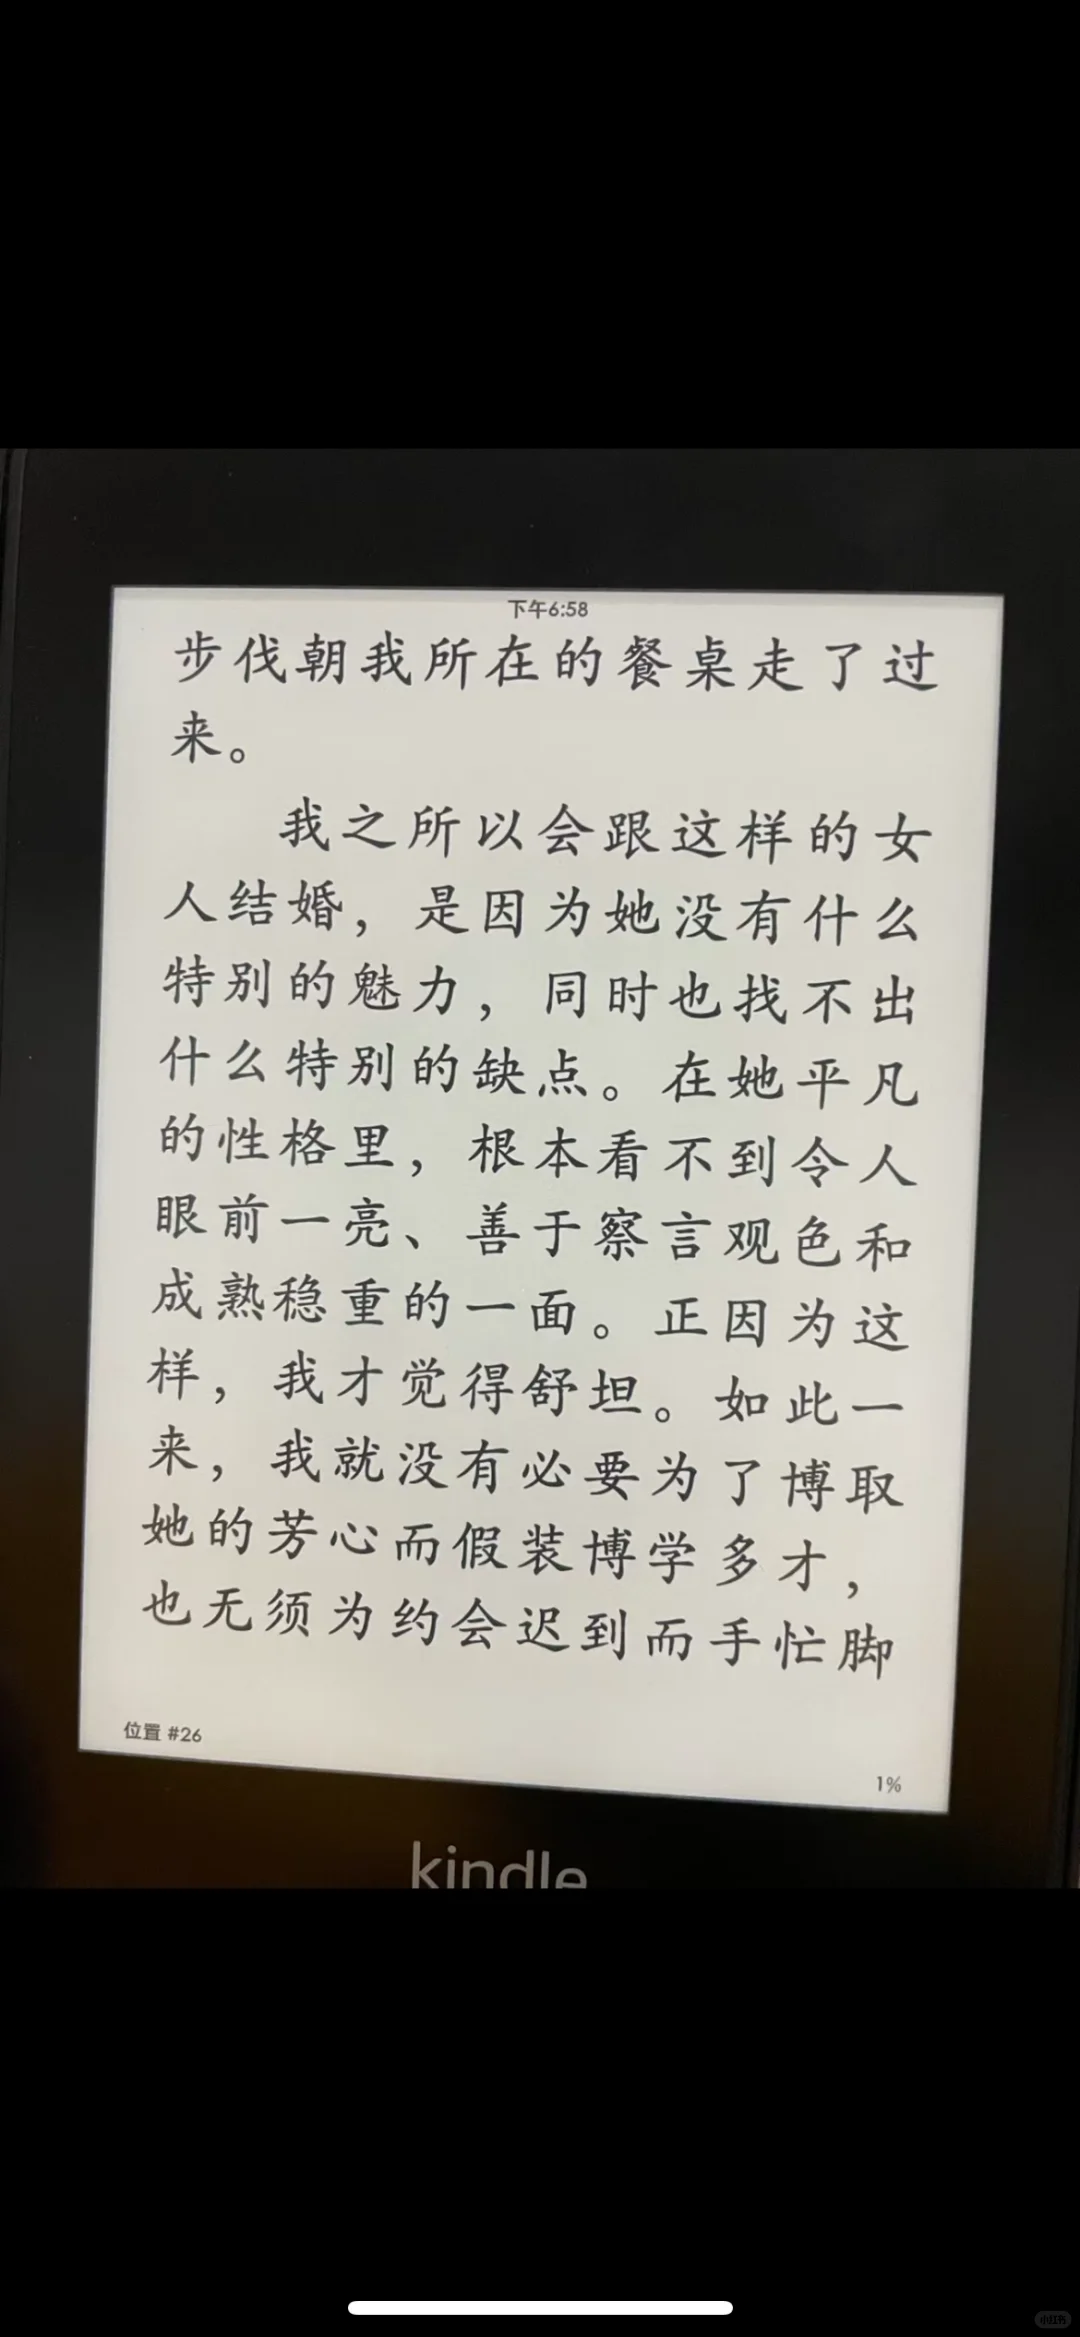 下午6:58
步伐朝我所在的餐桌走了过
来。
我之所以会跟这样的女
人结婚，是因为她没有什么
特别的魅力，同时也找不出
什么特别的缺点。在她平凡
的性格里，根本看不到令人
眼前一亮、善于察言观色和
成熟稳重的一面。正因为这
样，我才觉得舒坦。如此一
来，我就没有必要为了博取
她的芳心而假装博学多才，
也无须为约会迟到而手忙脚
位置 #26
1%
kindle
小红书